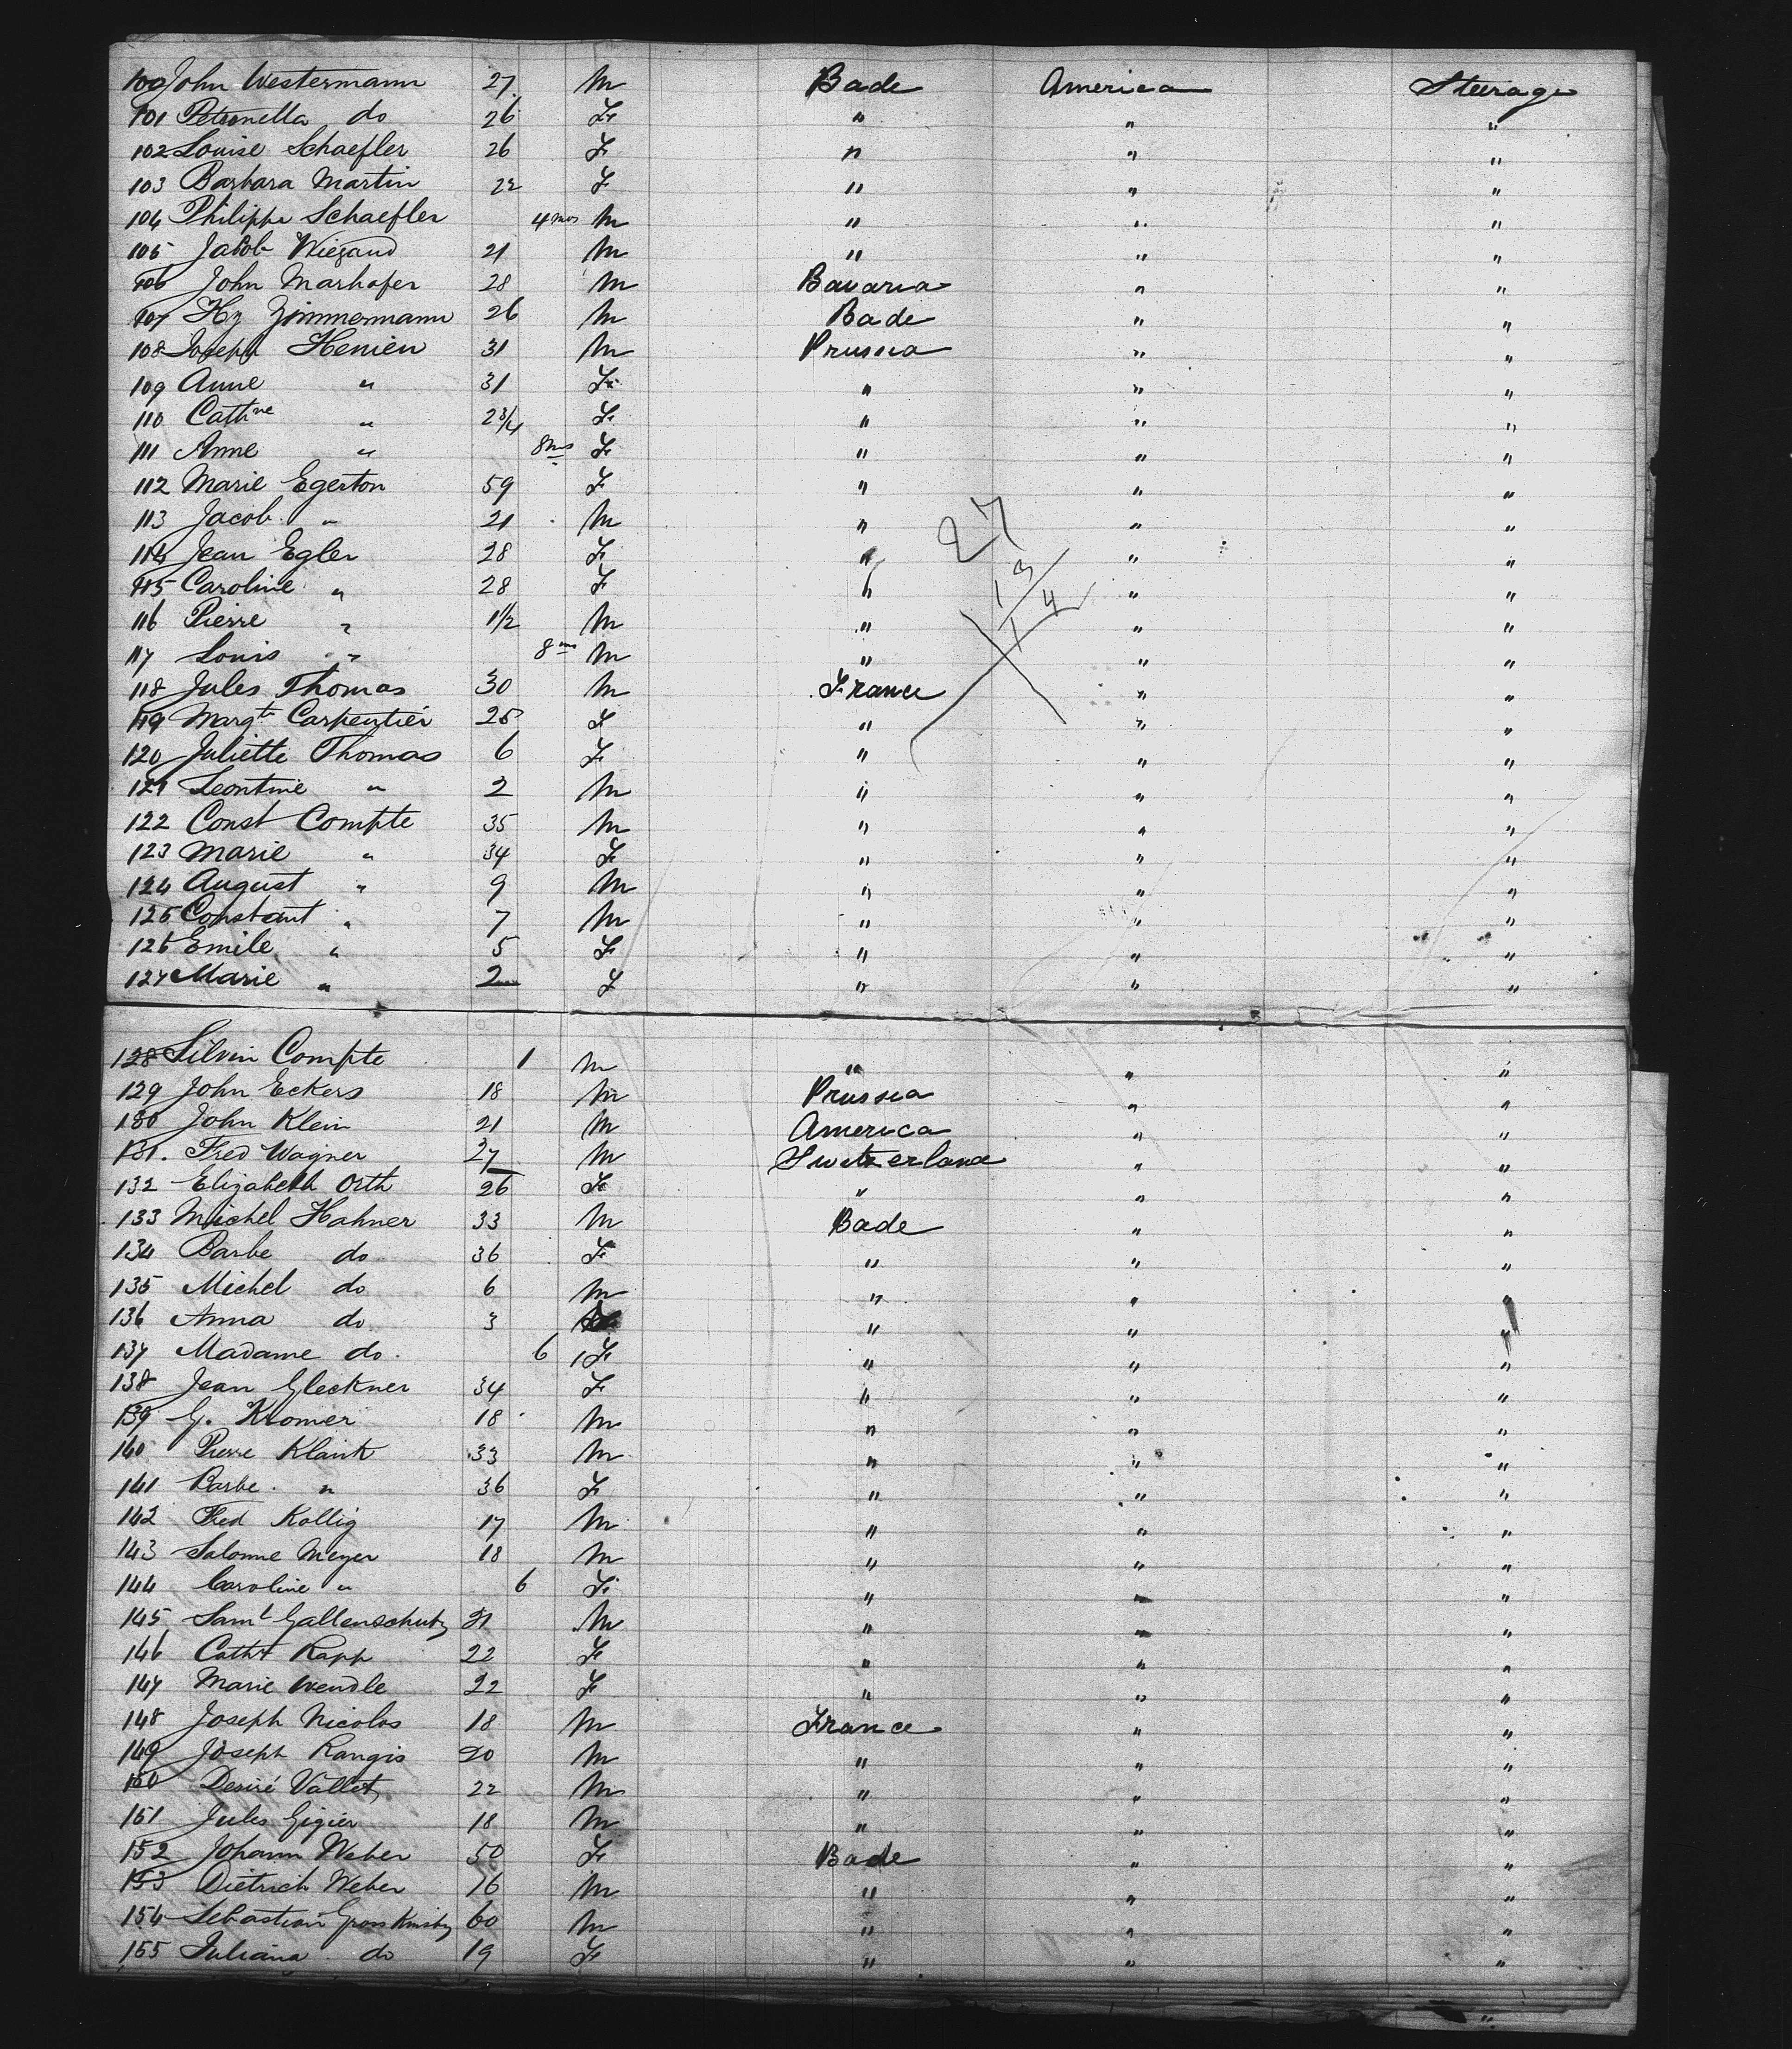 100 John Westermann 27 M Bade America Steerage
101 Petronella do 26 F " " "
102 Louise Schaefler 26 F " " "
103 Barbara Martin 22 F " " "
104 Philippe Schaefler 4 mos M " " "
105 Jacob Wiegand 21 M " " "
106 John Marhofer 28 M Bavaria " "
107 Hy Zimmermann 26 M Bade " "
108 Joseph Henien 31 M Prussia " "
109 Anne " 31 F " " "
110 Cathne " 2 3/4 F " " "
111 Anne " 8 ms F " " "
112 Marie Egerton 59 F " " "
113 Jacob " 21 M " " "
27
114 Jean Egler 28 F " " "
115 Caroline " 28 F " " "
13
4
116 Pierre " 1 1/2 M " " "
117 Louis " 8 ms M " " "
118 Jules Thomas 30 M France " "
119 Margte Carpentier 25 F " " "
120 Juliette Thomas 6 F " " "
121 Leontine " 2 M " " "
122 Const Compte 35 M " " "
123 Marie " 34 F " " "
124 August " 9 M " " "
125 Constant " 7 M " " "
126 Emile " 5 F " " "
127 Marie " 2 F " " "
128 Silvin Compte 1 M " " "
129 John Eckers 18 M Prussia " "
130 John Klein 21 M America " "
131. Fred Wagner 27 M Switzerland " "
132 Elizabeth Orth 26 F " " "
133 Michel Hahner 33 M Bade " "
134 Barbe do 36 F " " "
135 Michel do 6 M " " "
136 Anna do 3 " " "
137 Madame do. 6 F " " "
138 Jean Gleckner 34 F " " "
139 G. Kromer 18 M " " "
140 Pierre Klank 33 M " " "
141 Barbe " 36 F " " "
142 Fred Kollig 17 M " " "
143 Salome Meyer 18 M " " "
144 Caroline " 6 F " " "
145 Saml Gallenschutz 21 M " " "
146 Catht Rapp 22 F " " "
147 Marie Wendle 22 F " " "
148 Joseph Nicolas 18 M France " "
149 Joseph Rangis 20 M " " "
150 Desiré Vallet 22 M " " "
151 Jules Gigier 18 M " " "
152 Johann Weber 50 F Bade " "
153 Dietrich Weber 16 M " " "
154 Sebastian 60 M " " "
155 Juliana do 19 F " " "